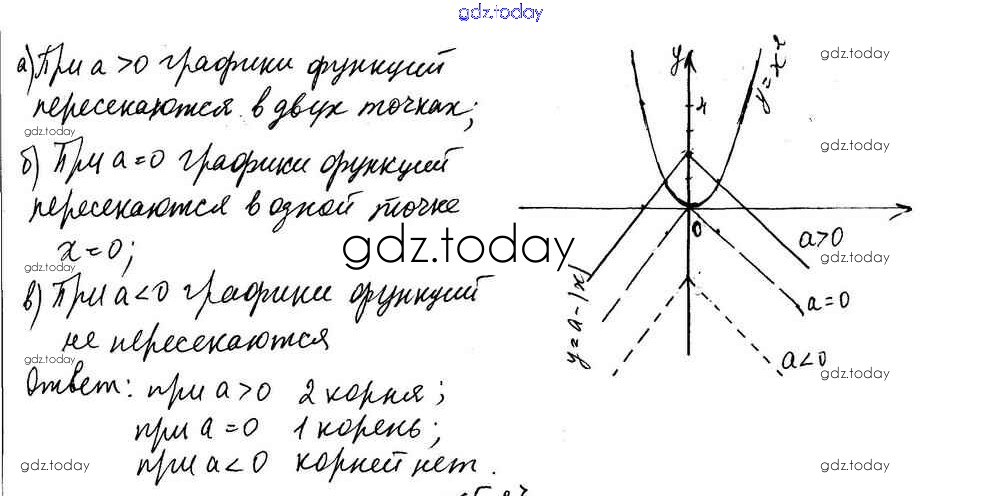 gdz.today
а) При a>0 графики функций
пересекаются в двух точках;
gdz.today
б) При a=0 графики функций
пересекаются в одной точке
x=0;
gdz.today
в) При a<0 графики функций
не пересекаются
gdz.today
Ответ: при a>0 2 корня;
при a=0 1 корень;
при a<0 корней нет.
gdz.today
gdz.today
y
y=x²
gdz.today
4
gdz.today
0
a>0
gdz.today
a=0
y=a-|x|
a<0
gdz.today
gdz.today